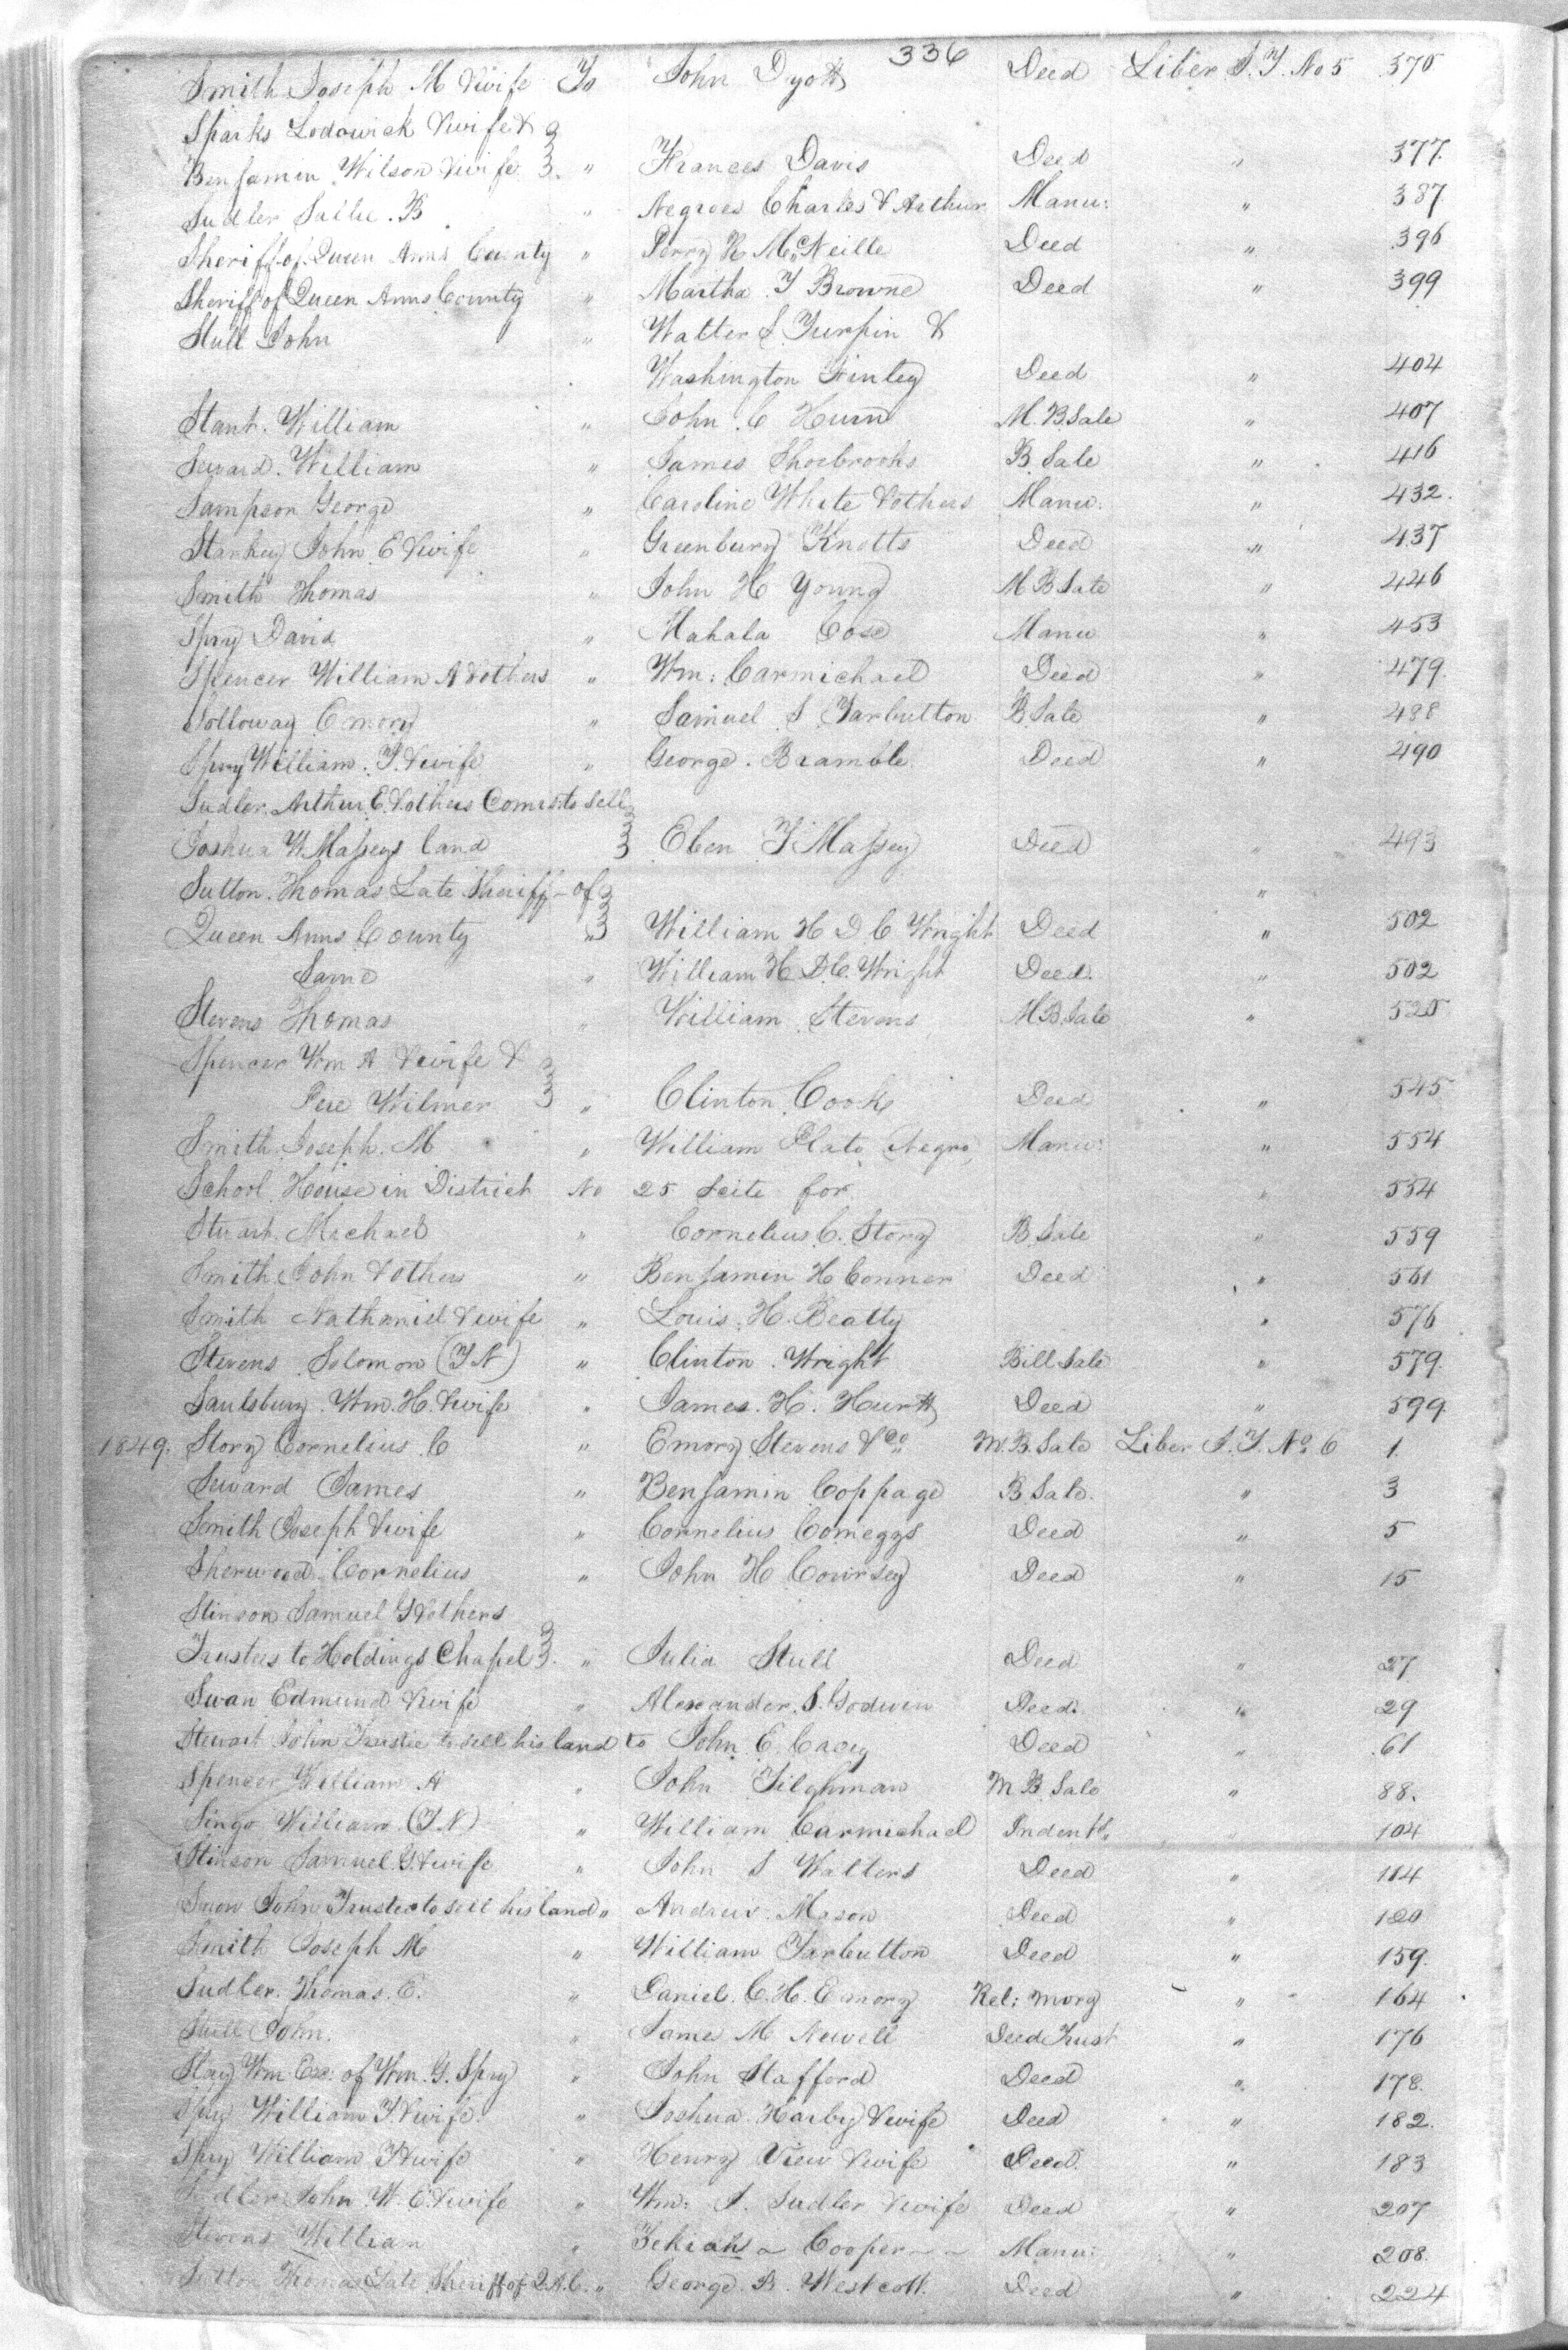 336
Smith Joseph M & wife To John Dyott Deed Liber J.T. No 5 370
Sparks Lodowick & wife &
Benjamin Wilson & wife " Frances Davis Deed " 377.
Sudler Sallie. B " Negroes Charles & Arthur Manu: " 387
Sheriff of Queen Anns County " Perry R McNeille Deed " 396
Sheriff of Queen Anns County " Martha T Browne Deed " 399
Stull John " Walter S Turpin &
Washington Finley Deed " 404
Stant. William " John C Hurn M. B. Sale " 407
Seward. William " James Shoebrooks B Sale " 416
Sampson George " Caroline White & others Manu: " 432.
Starkey John E & wife " Greenbury Knotts Deed " 437
Smith Thomas " John H Young M B Sale " 446
Spry David " Mahala Cose Manu " 453
Spencer William A & others " Wm: Carmichael Deed " 479
Solloway Emory " Samuel S Tarbutton B Sale " 488
Spry William. T. & wife " George. Bramble. Deed " 490
Sudler. Arthur E. & others Comrs. to sell
Joshua W. Masseys land Eben T Massey Deed " 493
Sutton. Thomas Late Sheriff of "
Queen Anns County " William H D C Wright Deed " 502
Same " William H D C. Wright Deed. " 502
Stevens Thomas " William Stevens M B Sale " 525
Spencer Wm A & wife &
Pere Wilmer " Clinton Cook Deed " 545
Smith. Joseph. M " William Plato Negro Manu: " 554
School House in District No 25 Scite for " 554
Stuart. Michael " Cornelius C. Story B Sale " 559
Smith John & others " Benjamin H Conner Deed " 561
Smith Nathaniel & wife " Louis. H. Beatty " 576
Stevens Solomon (F N) " Clinton. Wright Bill Sale " 579.
Saulsbury. Wm. H. & wife " James. H. Hurtt Deed " 599
1849. Story Cornelius. C " Emory Stevens & Co M. B. Sale Liber J. T. No. 6 1.
Seward James " Benjamin Coppage B Sale. " 3
Smith Joseph & wife " Cornelius Comegys Deed " 5
Sherwood. Cornelius " John H Coursey Deed " 15
Stinson Samuel G & others
Trustees to Holdings Chapel " Julia Stull Deed " 27
Swan Edmund & wife " Alexander. S. Godwin Deed. " 29
Stewart John Trustee to sell his land to John. E. Cacy Deed " 61
Spencer William. A " John Tilghman M B Sale " 88.
Singo William. (F N) " William Carmichael Indent. " 104
Stinson Samuel. G. & wife " John S Walters Deed " 114
John Trustee to sell his land " Andrew. Mason Deed " 120
Smith Joseph M " William Tarbutton Deed " 159.
Sudler. Thomas. E. " Daniel. C. H. Emory Rel: Morg " 164
Stull John. " James M Newell Deed Trust " 176
Slay Wm Exr. of Wm. G. Spry " John Stafford Deed " 178.
Spry William T. & wife " Joshua Harby & wife Deed " 182.
Spry William T & wife " Henry View & wife Deed. " 183
Sudler John. W. E. & wife " Wm: J. Sudler & wife Deed " 207
Stevens William " Zekiah Cooper Manu: " 208.
Sutton Thomas Late Sheriff of Q. A. C. " George. B. Westcott. Deed " 224